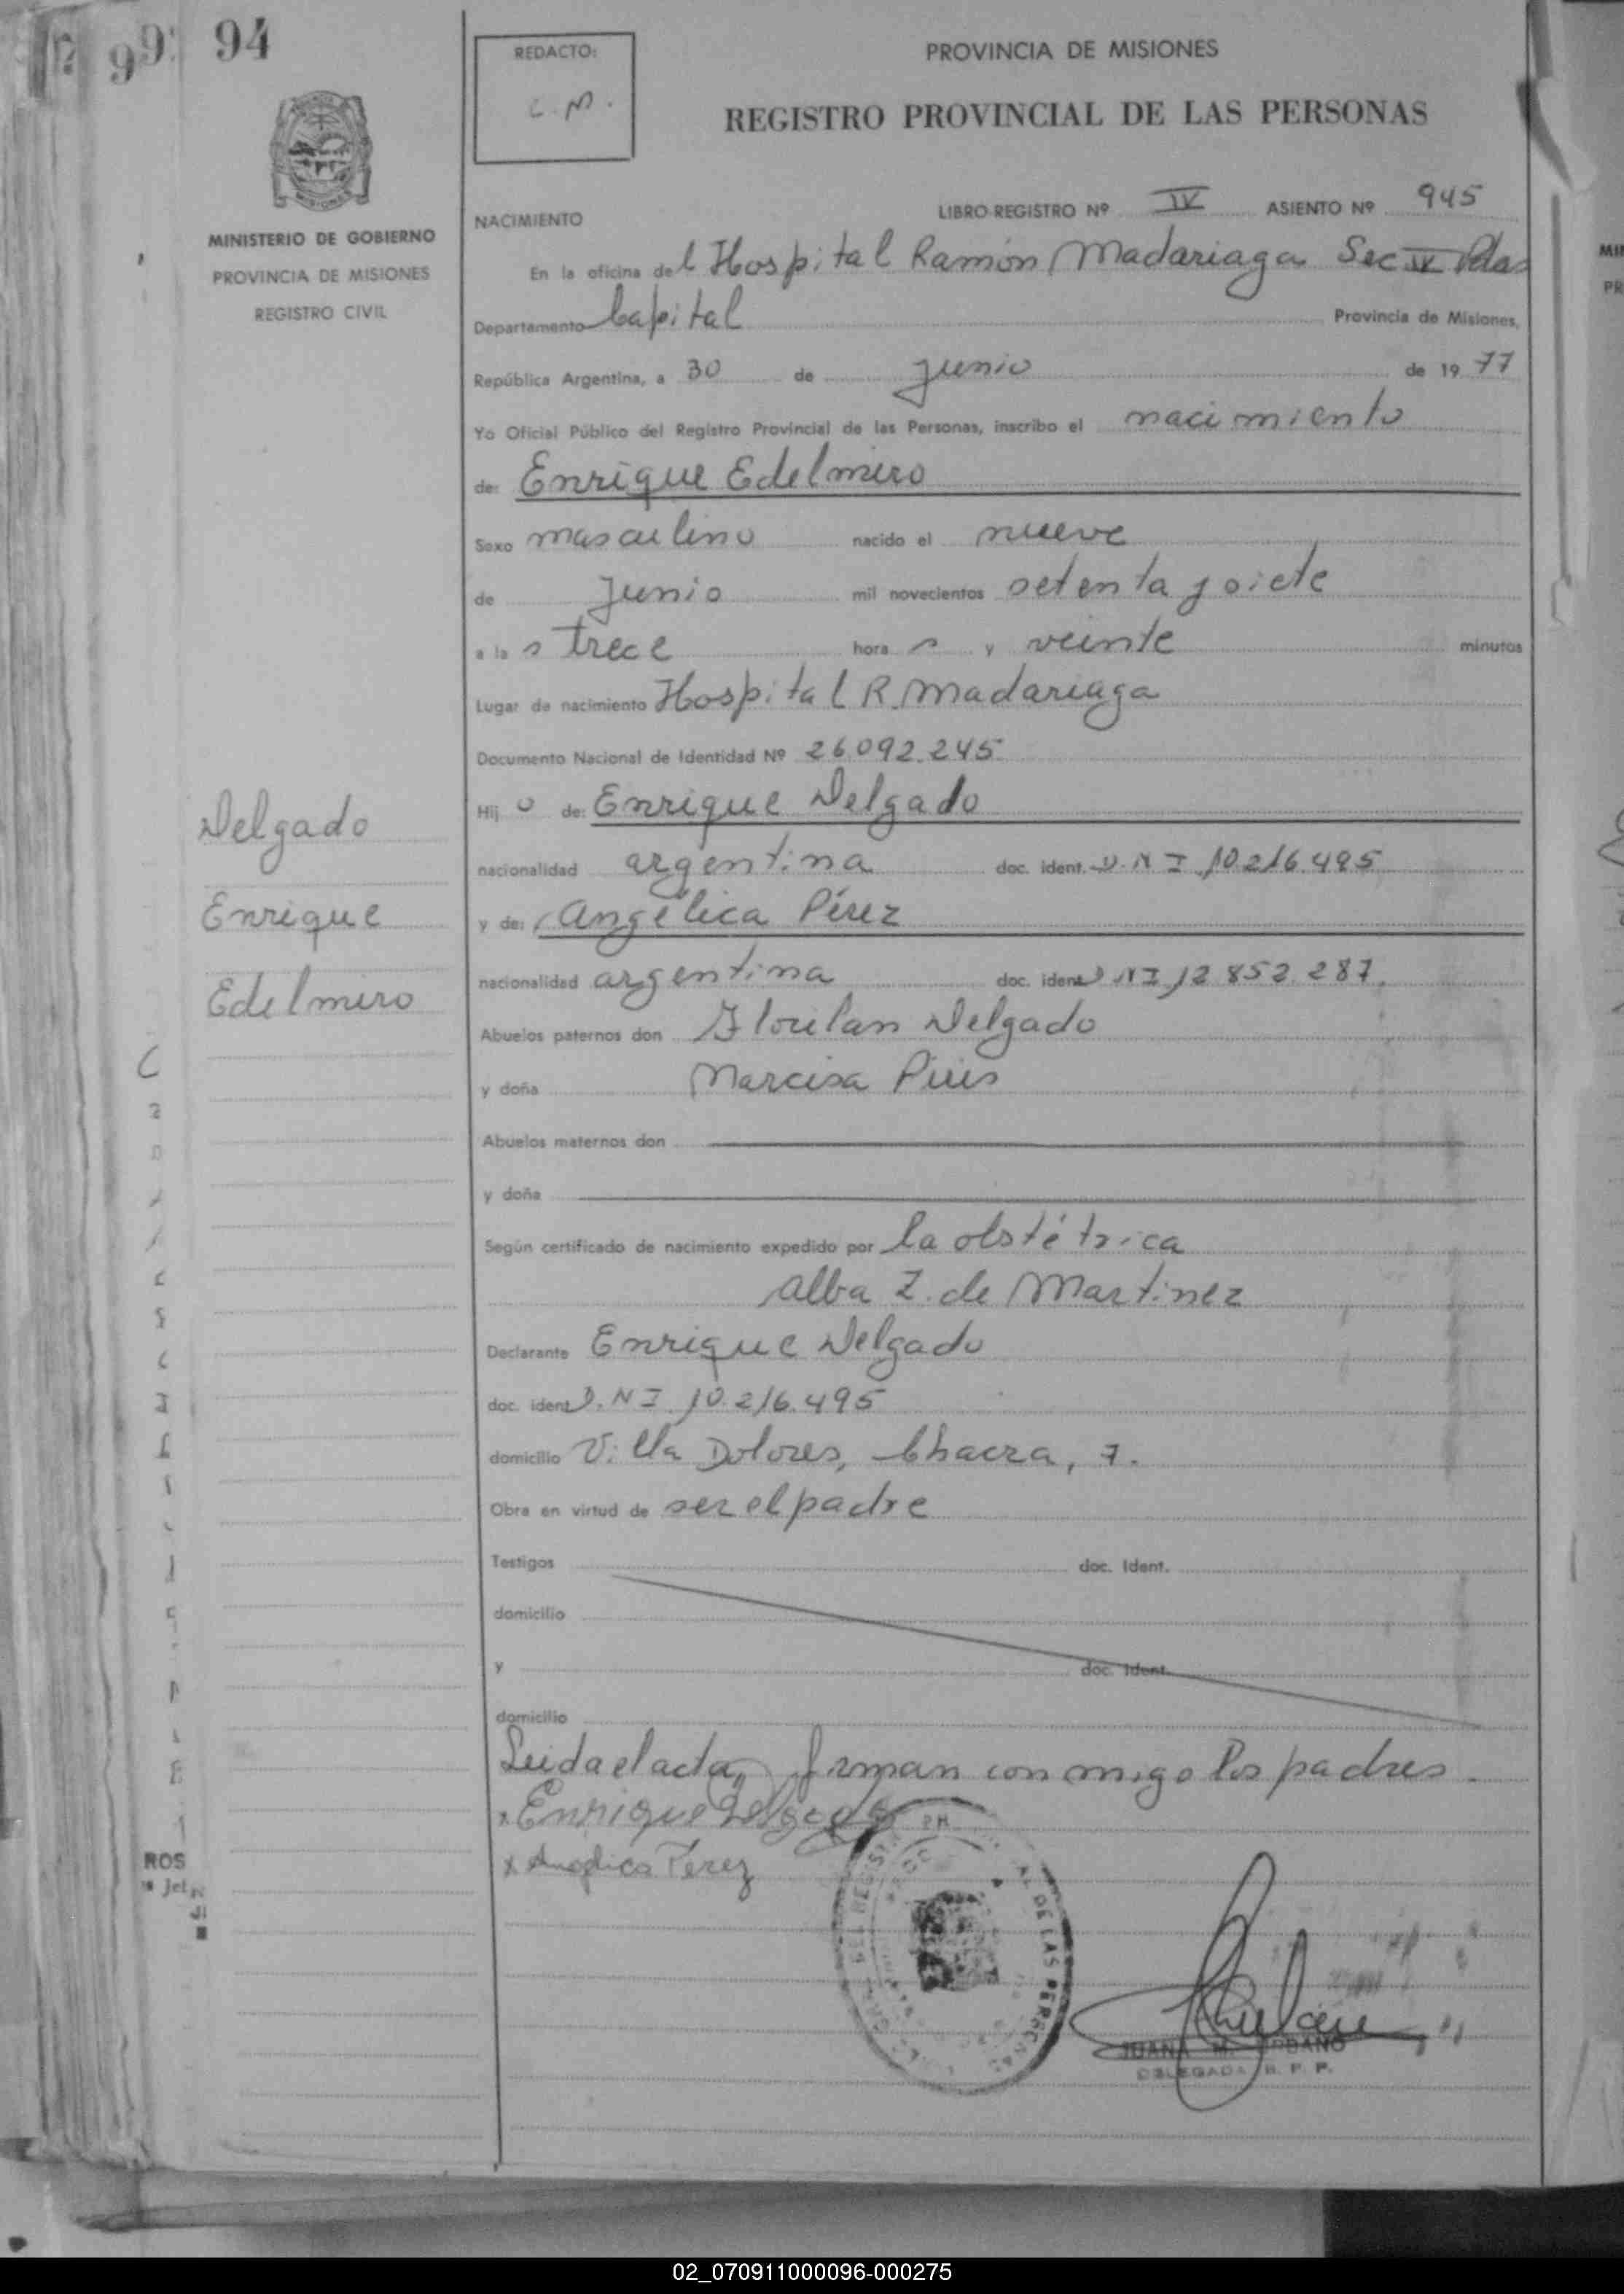 94
REDACTO:
C. M.
PROVINCIA DE MISIONES
REGISTRO PROVINCIAL DE LAS PERSONAS
MINISTERIO DE GOBIERNO
PROVINCIA DE MISIONES
REGISTRO CIVIL
NACIMIENTO
LIBRO REGISTRO Nº IV ASIENTO Nº 945
En la oficina del Hospital Ramón Madariaga Sec IV Pdas
Departamento Capital Provincia de Misiones,
República Argentina, a 30 de junio de 1977
Yo Oficial Público del Registro Provincial de las Personas, inscribo el nacimiento
de: Enrique Edelmiro
Sexo masculino nacido el nueve
de junio mil novecientos setenta y siete
a las trece horas y veinte minutos
Lugar de nacimiento Hospital R. Madariaga
Documento Nacional de Identidad Nº 26.092.245
Hijo de: Enrique Delgado
nacionalidad argentina doc. ident. D.N.I 10.216.495
y de: Angélica Pérez
nacionalidad argentina doc. ident D.N.I 12.852.287.
Delgado
Enrique
Edelmiro
Abuelos paternos don Florilan Delgado
y doña Marcisa Piris
Abuelos maternos don
y doña
Según certificado de nacimiento expedido por la obstétrica
Alba Z. de Martinez
Declarante Enrique Delgado
doc. ident D.N.I. 10.216.495
domicilio Villa Dolores, Chacra, 7.
Obra en virtud de ser el padre
Testigos doc. Ident.
domicilio
y doc. Ident.
domicilio
Leida el acta, firman con migo los padres
x Enrique Delgado
x Angelica Perez
DE LAS PERSONAS
JUANA M. URBANO
DELEGADA R. P. P.
ROS
02_070911000096-000275